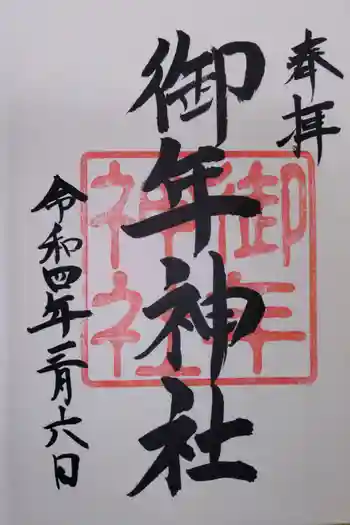 奉拝
御年神社
御年
神社
令和四年二月六日